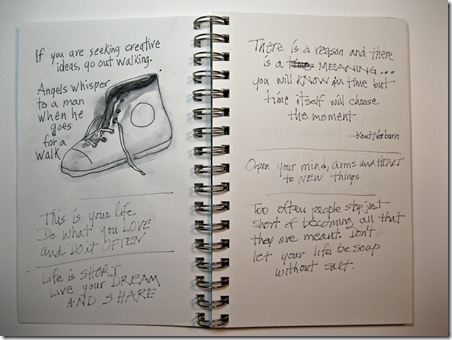 If you are seeking creative
ideas, go out walking.
Angels whisper
to a man
when he
goes
for a
walk
This is your life
Do what you LOVE
and DO it OFTEN
Life is SHORT
Live your DREAM
AND SHARE
There is a reason and there
is a MEANING...
you will KNOW in time but
time itself will choose
the moment
-Kent Nerburn
Open your mind, arms and HEART
to NEW things
Too often people stop just
short of becoming all that
they are meant. Don't
let your life be soup
without salt.